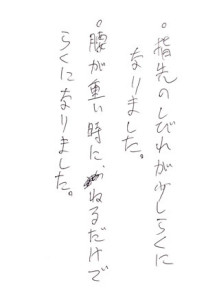 。指先のしびれが少しらくに
なりました。
。腰が重い時に、ねるだけで
らくになりました。